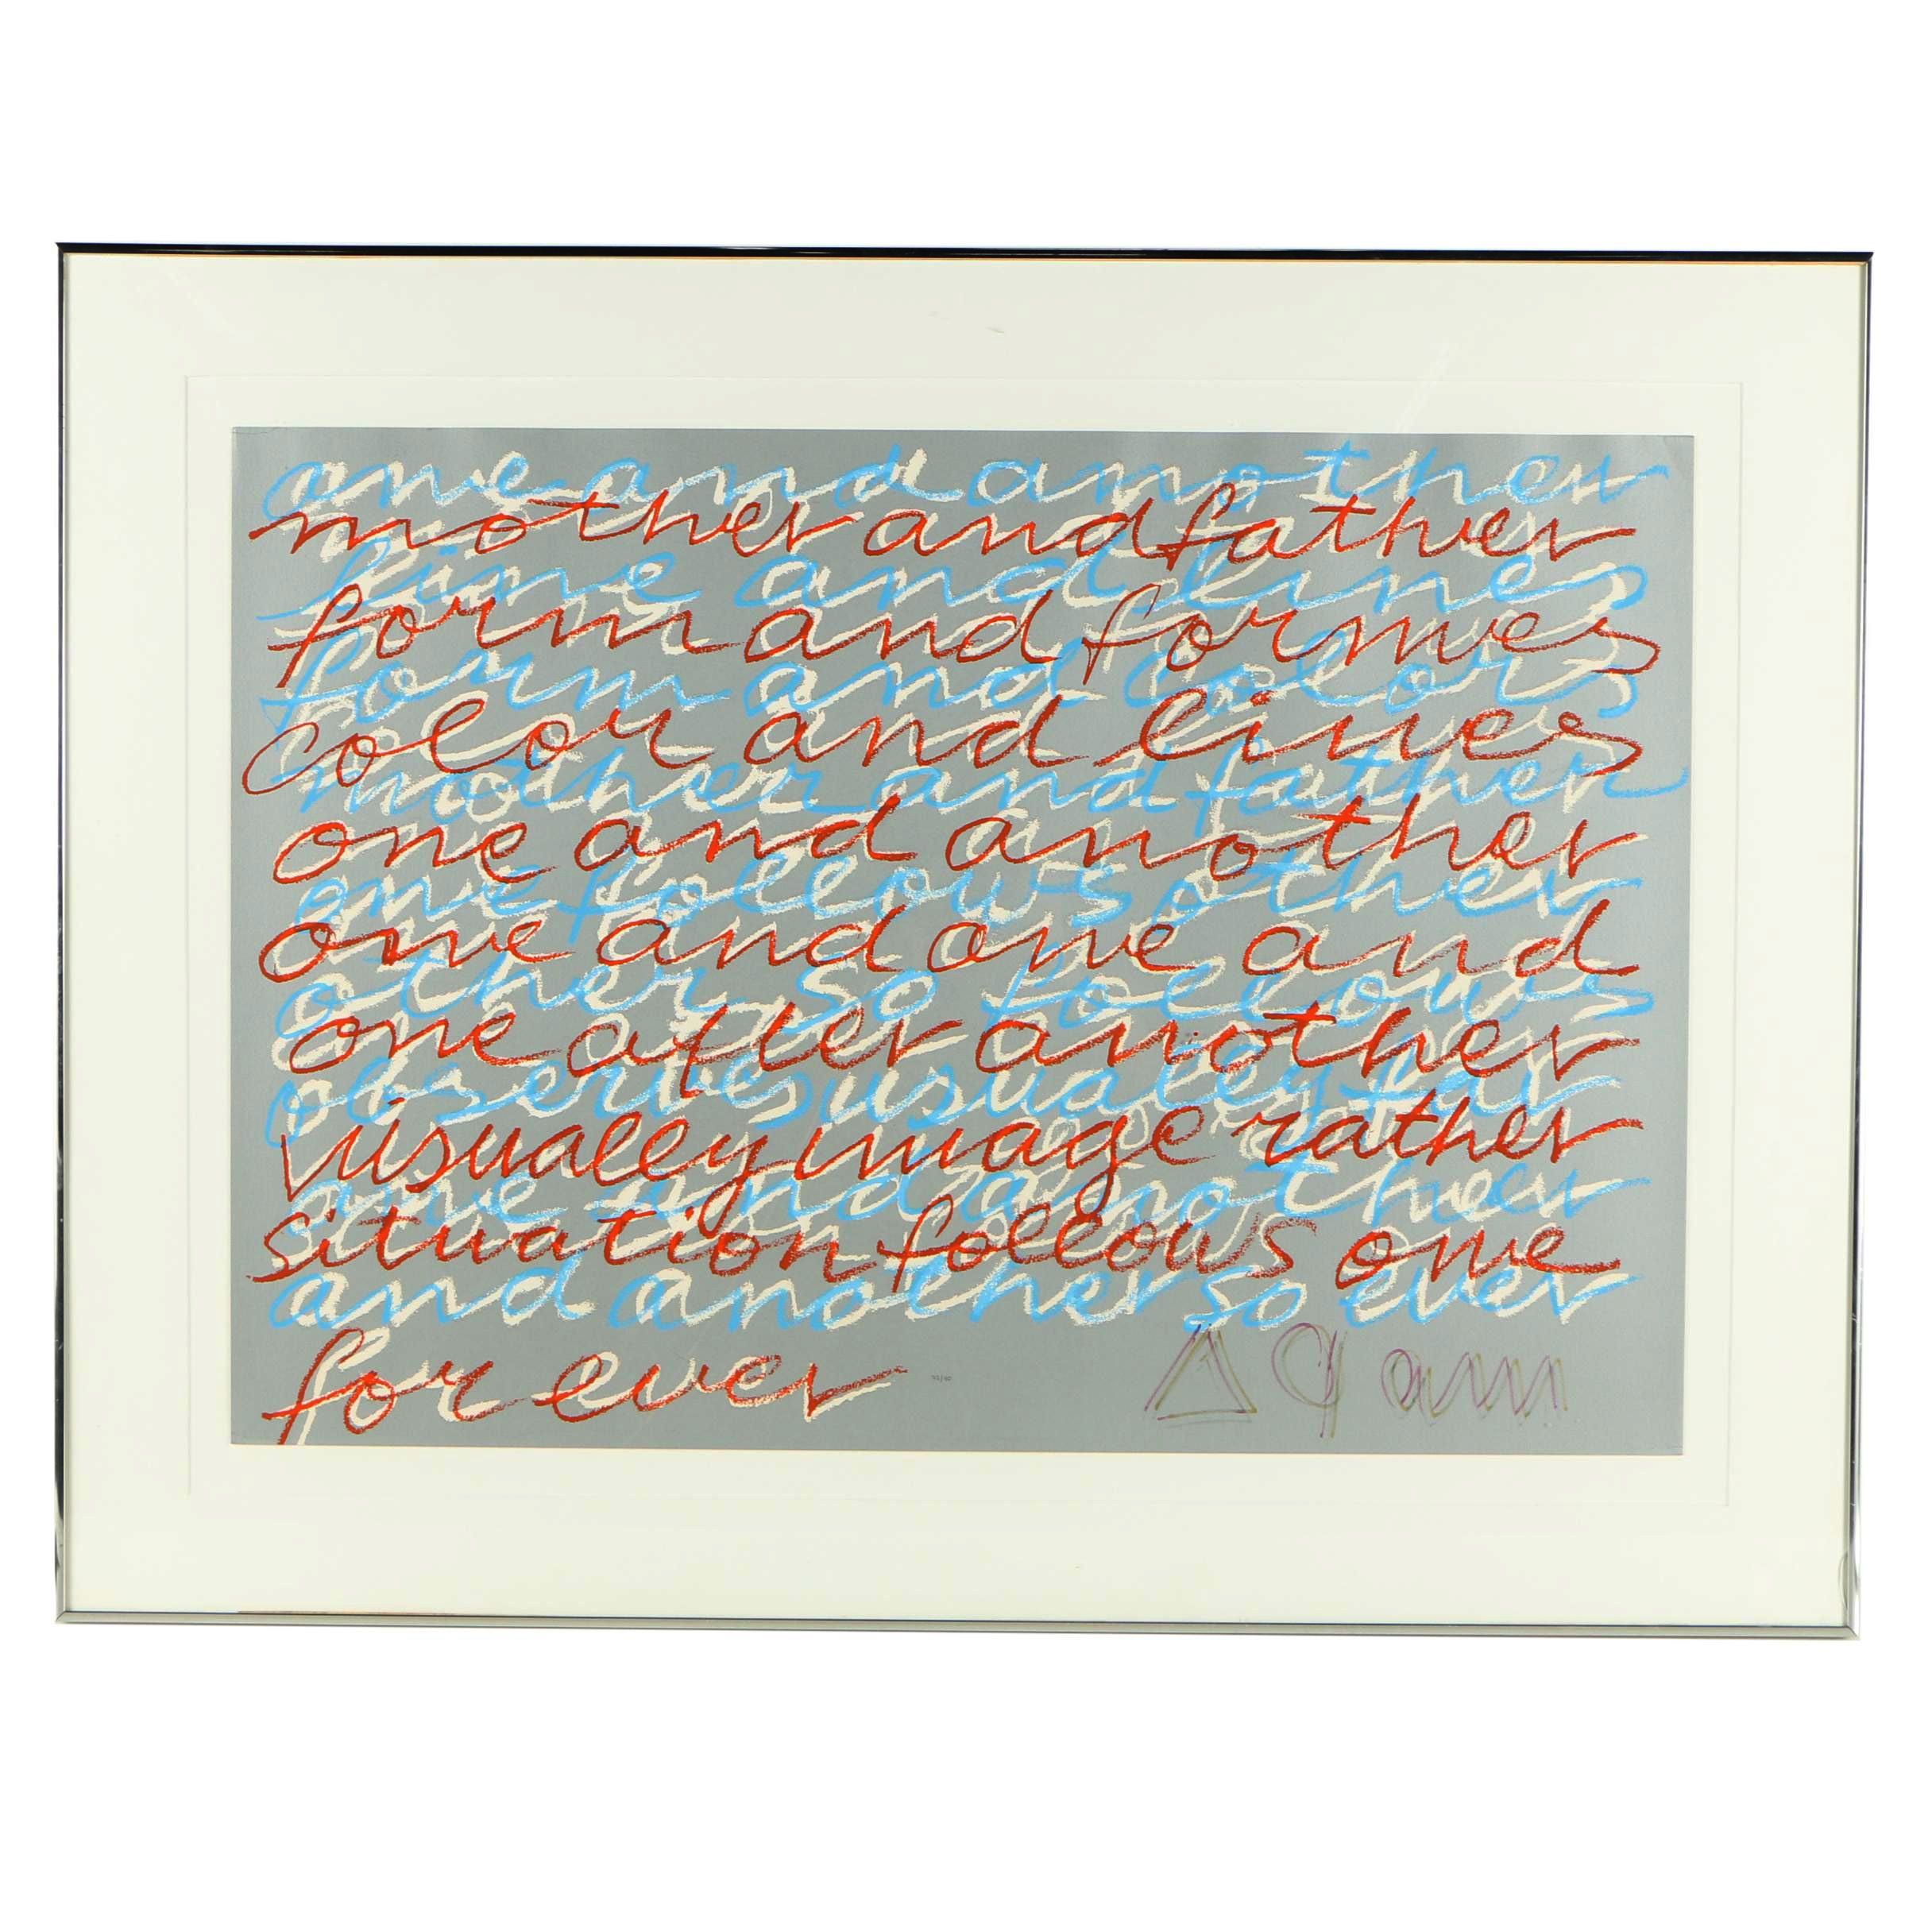 one and another
mother and father
line and lines
form and formes
form and colors
color and lines
mother and father
one and another
one follows other
one and one and
other so follows
one after another
observes usually far
visually image rather
one and another
situation follows one
and another so ever
for ever
Agam